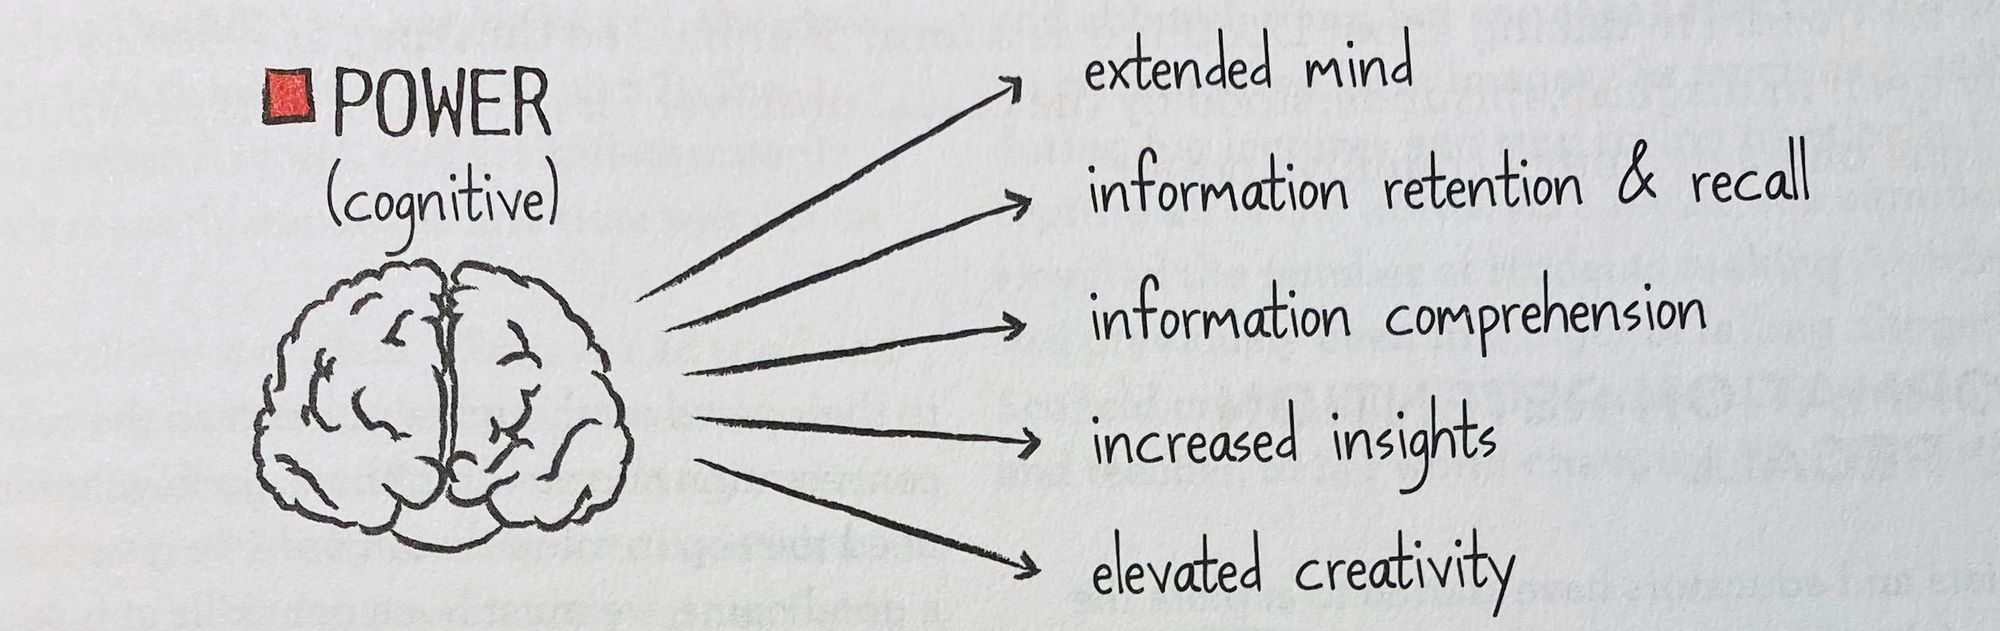 POWER
(cognitive)
extended mind
information retention & recall
information comprehension
increased insights
elevated creativity